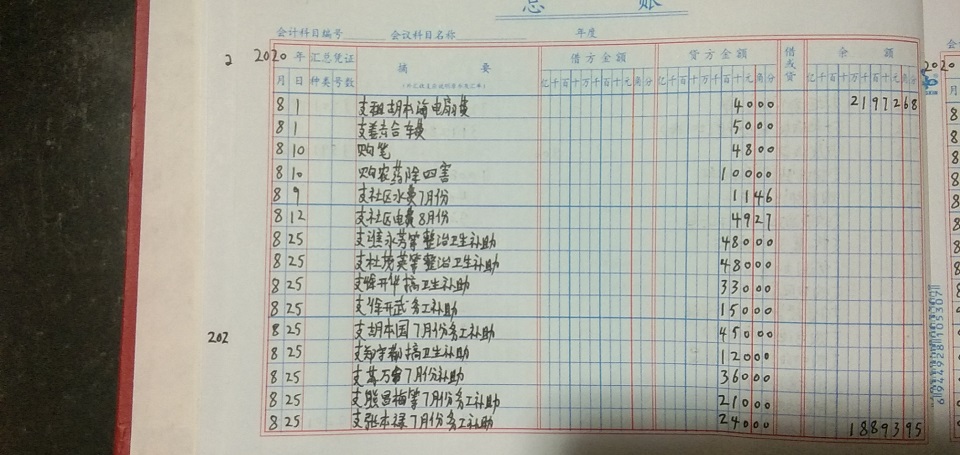 总 账
会计科目编号 会议科目名称 年度
2 2020 年 汇总凭证 摘 要 借方金额 贷方金额 借或贷 余 额
月 日 种类 号数 亿千百十万千百十元角分 亿千百十万千百十元角分 亿千百十万千百十元角分
8 1 支 胡本 电扇费 4000 2197268
8 1 支姜六合车费 5000
8 10 购笔 4800
8 10 购农药除四害 10000
8 9 支社区水费7月份 1146
8 12 支社区电费8月份 4927
8 25 支 永芳等整治卫生补助 48000
8 25 支杜 英等整治卫生补助 48000
8 25 支徐开华搞卫生补助 33000
8 25 支徐开武务工补助 15000
202 8 25 支胡本国7月份务工补助 45000
8 25 支 搞卫生补助 12000
8 25 支 万 7月份补助 36000
8 25 支熊昌梅等7月份务工补助 21000
8 25 支张本禄7月份务工补助 24000 1889395
2020
6944928105307